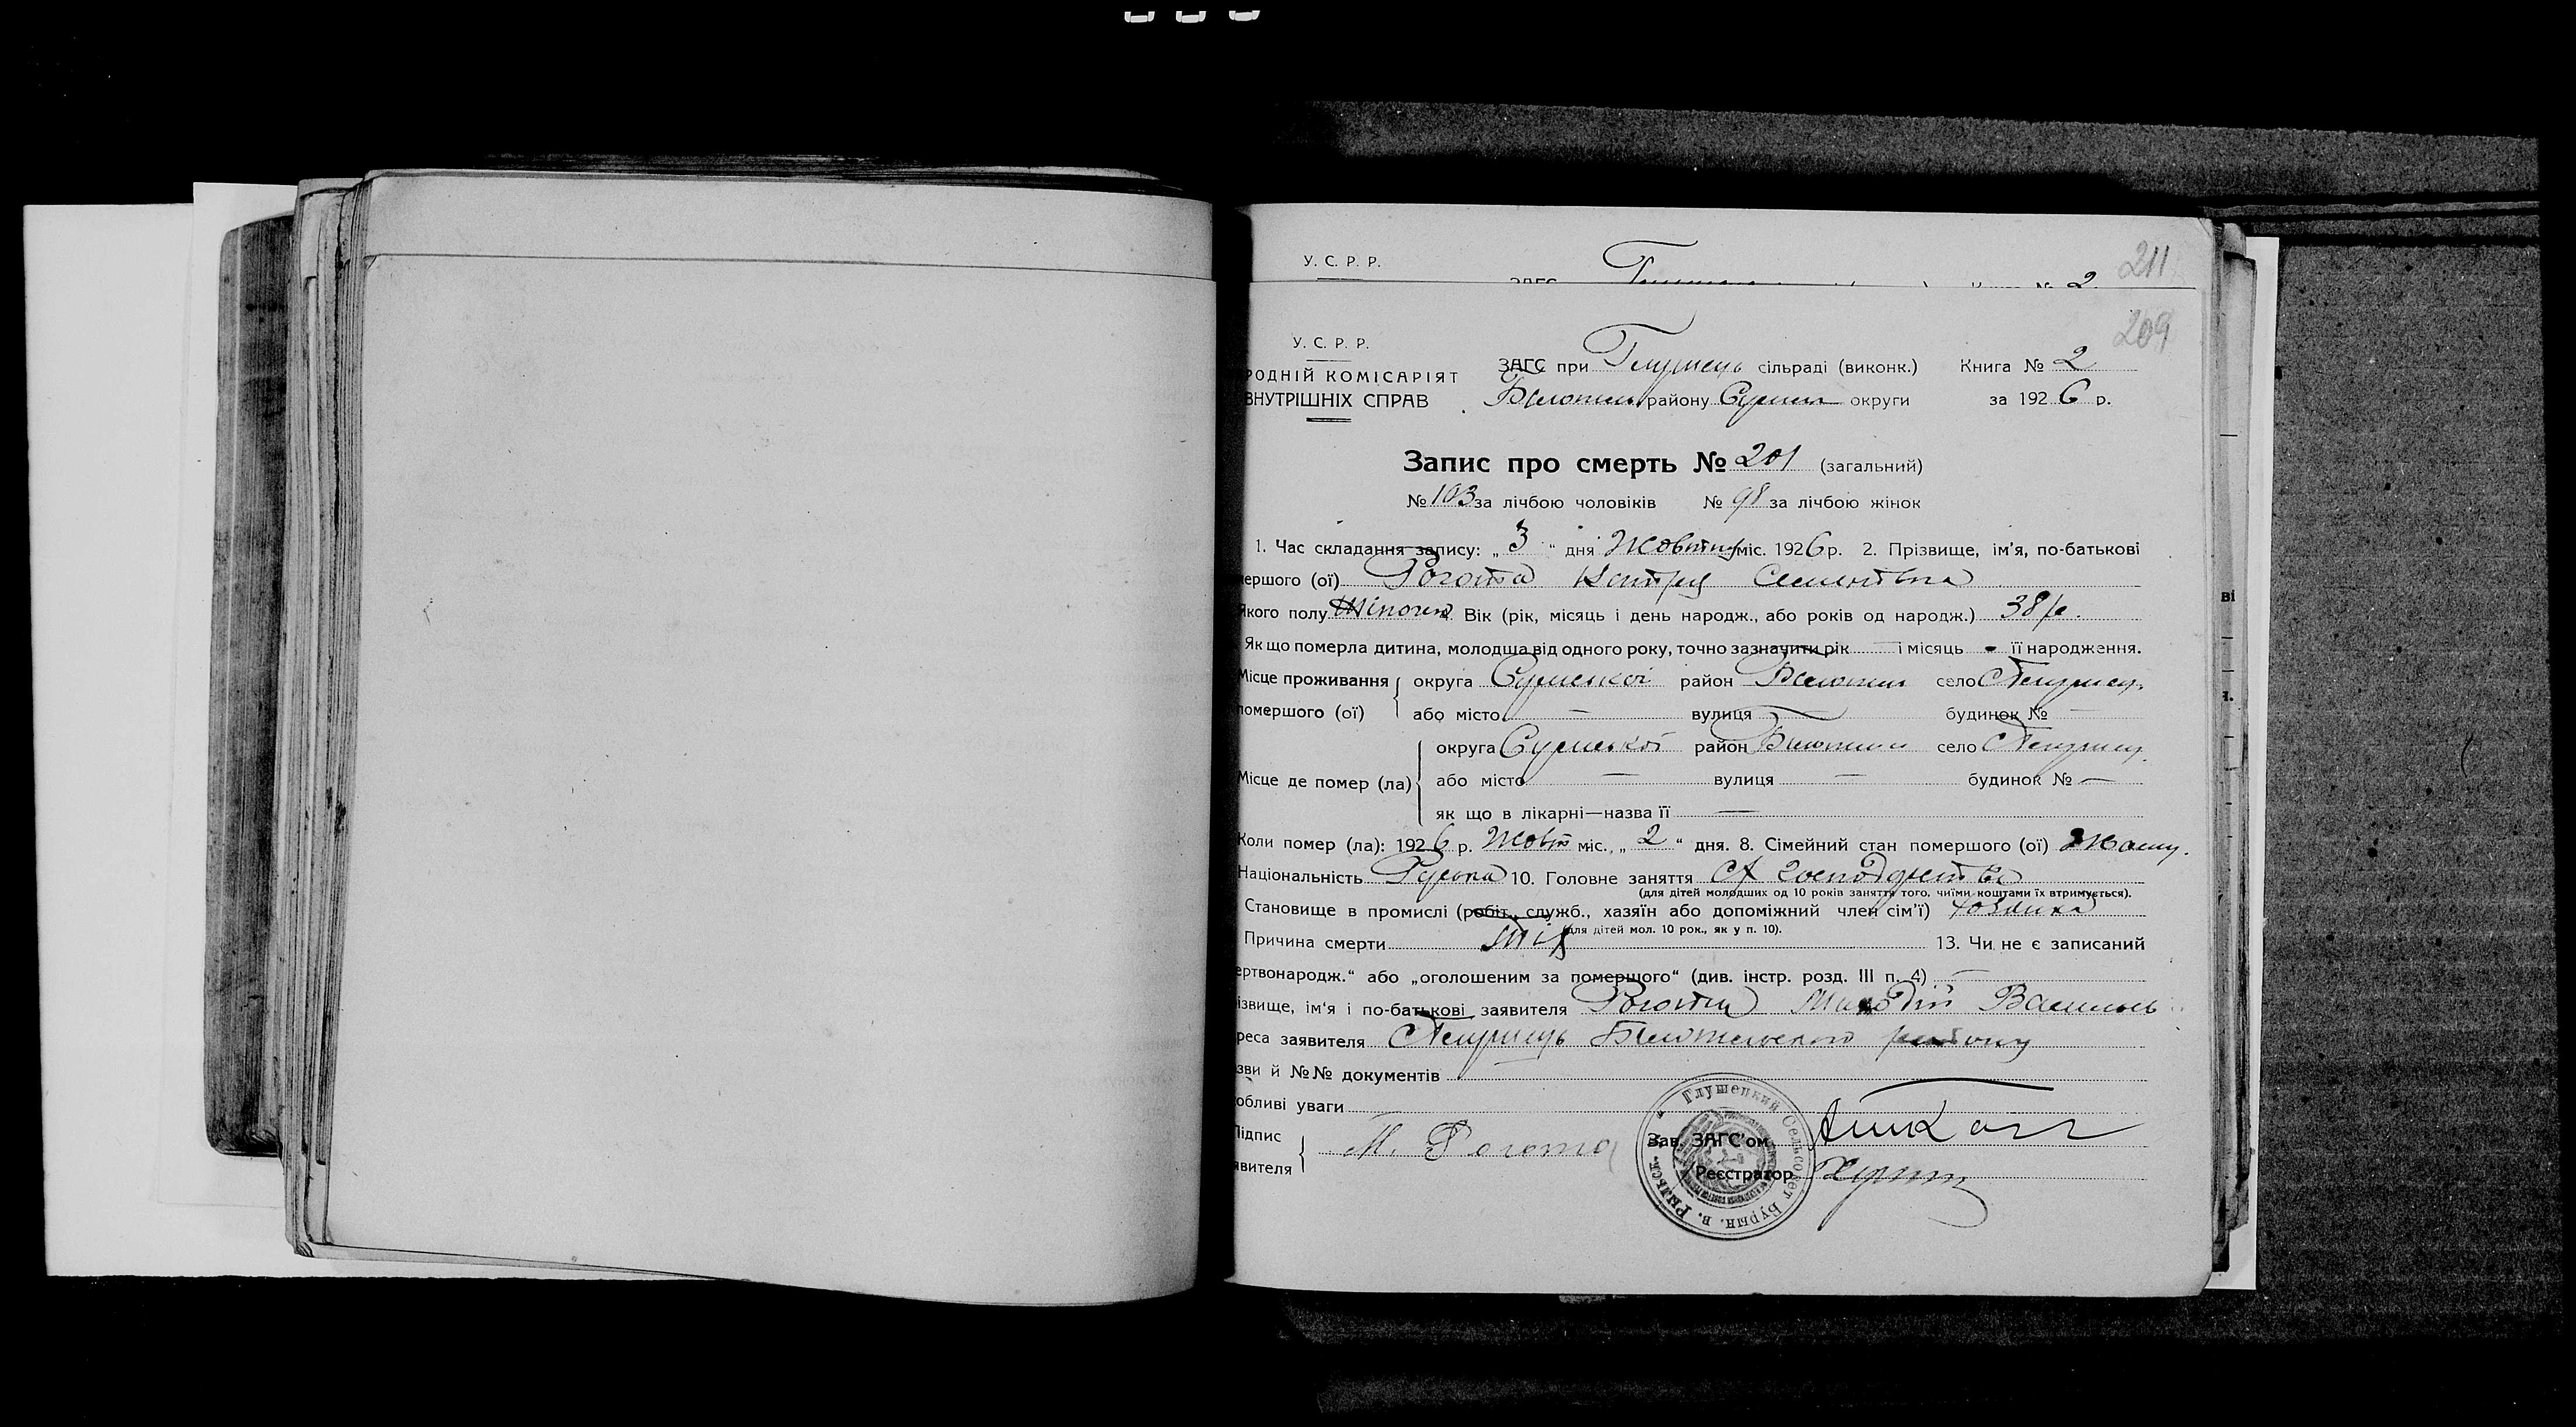 У. С. Р. Р.
211
Книга № 2
209
У. С. Р. Р.
РОДНІЙ КОМІСАРІЯТ
ВНУТРІШНІХ СПРАВ
ЗАГС при Глушець сільраді (виконк.) Книга № 2
Білопіль району Сумськ округи за 1926 р.
Запис про смерть № 201 (загальний)
№ 103 за лічбою чоловіків № 98 за лічбою жінок
1. Час складання запису: „3“ дня Жовтня міс. 1926 р. 2. Прізвище, ім'я, по-батькові
мершого (ої) Рогота Семенівна
Якого полу Жіноча Вік (рік, місяць і день народж., або років од народж.) 38 р.
Як що померла дитина, молодша від одного року, точно зазначити рік і місяць - її народження.
Місце проживання округа Сумської район Білопіль село Глушець
помершого (ої) або місто — вулиця — будинок № —
округа Сумської район Білопіль село Глушець
Місце де помер (ла) або місто — вулиця — будинок № —
як що в лікарні—назва її —
Коли помер (ла): 1926 р. Жовт міс. „2“ дня. 8. Сімейний стан помершого (ої)
Національність Руська 10. Головне заняття с/г господарство
(для дітей молодших од 10 років заняття того, чиїми коштами їх втримується).
Становище в промислі (робіт., служб., хазяїн або допоміжний член сім'ї)
(для дітей мол. 10 рок., як у п. 10).
Причина смерти 13. Чи не є записаний
ертвонародж.“ або „оголошеним за померщого“ (див. інстр. розд. III п. 4) —
ізвище, ім'я і по-батькові заявителя Рогота Василь
реса заявителя Глушець Білопільского району
зви й №№ документів
обливі уваги
Підпис
явителя М. Рогота
Зав. ЗАГС'ом
Реєстратор
Глушецкий Сельсовет Бурын. в. Рыльск.
ві